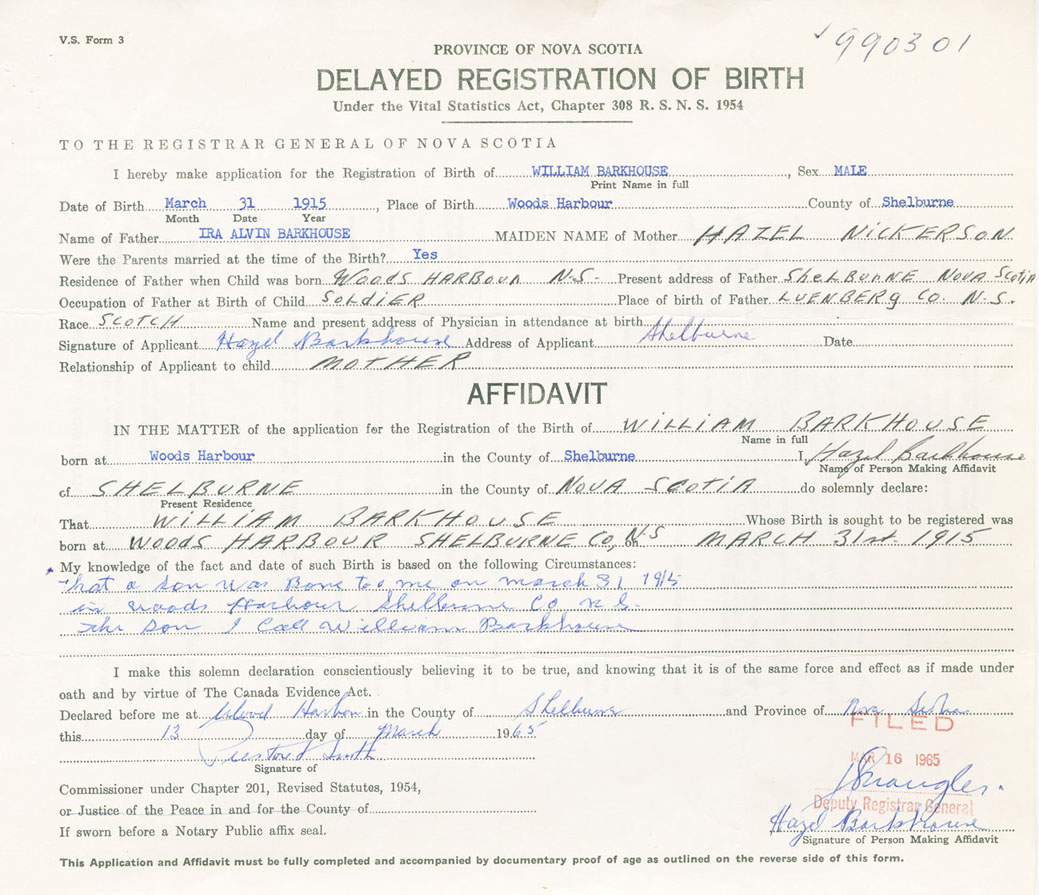 V.S. Form 3
990301
PROVINCE OF NOVA SCOTIA
DELAYED REGISTRATION OF BIRTH
Under the Vital Statistics Act, Chapter 308 R. S. N. S. 1954
TO THE REGISTRAR GENERAL OF NOVA SCOTIA
I hereby make application for the Registration of Birth of WILLIAM BARKHOUSE, Sex MALE
Print Name in full
Date of Birth March 31 1915, Place of Birth Woods Harbour County of Shelburne
Month Date Year
Name of Father IRA ALVIN BARKHOUSE MAIDEN NAME of Mother HAZEL NICKERSON
Were the Parents married at the time of the Birth? Yes
Residence of Father when Child was born WOODS HARBOUR N-S- Present address of Father SHELBURNE NOVA SCOTIA
Occupation of Father at Birth of Child SOLDIER Place of birth of Father LUENBERG CO. N.S.
Race SCOTCH Name and present address of Physician in attendance at birth
Signature of Applicant Hazel Barkhouse Address of Applicant Shelburne Date
Relationship of Applicant to child MOTHER
AFFIDAVIT
IN THE MATTER of the application for the Registration of the Birth of WILLIAM BARKHOUSE
Name in full
born at Woods Harbour in the County of Shelburne I, Hazel Barkhouse
Name of Person Making Affidavit
of SHELBURNE in the County of NOVA SCOTIA do solemnly declare:
Present Residence
That WILLIAM BARKHOUSE Whose Birth is sought to be registered was
born at WOODS HARBOUR SHELBURNE CO, N.S on MARCH 31st 1915
My knowledge of the fact and date of such Birth is based on the following Circumstances:
that a son was Born too me on march 31 1915
in woods Harbour Shelburne Co N S.
the Son I Call William Barkhouse
I make this solemn declaration conscientiously believing it to be true, and knowing that it is of the same force and effect as if made under
oath and by virtue of The Canada Evidence Act.
Declared before me at Wood Harbour in the County of Shelburne and Province of Nova Scotia
FILED
this 13 day of March 1965
MAR 16 1965
Smith
Signature of
Commissioner under Chapter 201, Revised Statutes, 1954,
or Justice of the Peace in and for the County of
Deputy Registrar General
Hazel Barkhouse
If sworn before a Notary Public affix seal.
Signature of Person Making Affidavit
This Application and Affidavit must be fully completed and accompanied by documentary proof of age as outlined on the reverse side of this form.